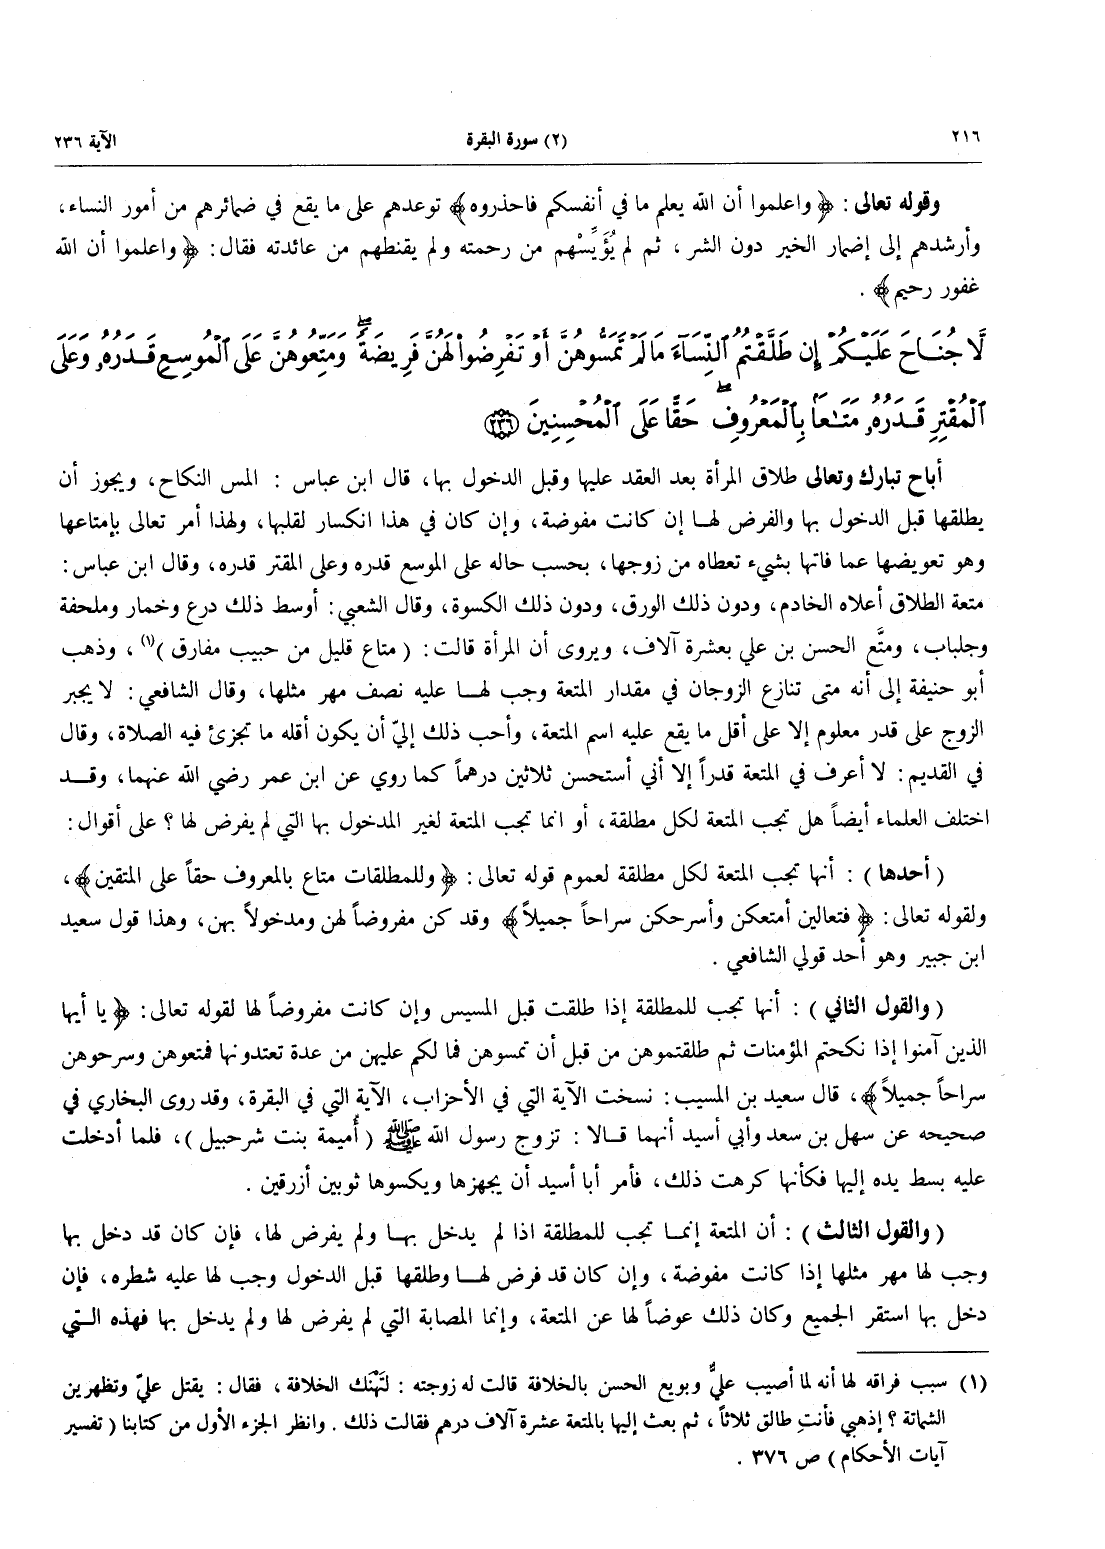 ٢١٦ (٢) سورة البقرة الآية ٢٣٦
وقوله تعالى : ﴿ واعلموا أن الله يعلم ما في أنفسكم فاحذروه﴾ توعدهم على ما يقع في ضمائرهم من أمور النساء،
وأرشدهم إلى إضمار الخير دون الشر ، ثم لم يُؤَيِّسْهم من رحمته ولم يقنطهم من عائدته فقال : ﴿واعلموا أن الله
غفور رحيم﴾ .
لَّا جُنَاحَ عَلَيْكُمْ إِن طَلَّقْتُمُ ٱلنِّسَآءَ مَا لَمْ تَمَسُّوهُنَّ أَوْ تَفْرِضُوا۟ لَهُنَّ فَرِيضَةً ۚ وَمَتِّعُوهُنَّ عَلَى ٱلْمُوسِعِ قَدَرُهُۥ وَعَلَى
ٱلْمُقْتِرِ قَدَرُهُۥ مَتَـٰعًۢا بِٱلْمَعْرُوفِ ۖ حَقًّا عَلَى ٱلْمُحْسِنِينَ ﴿٢٣٦﴾
أباح تبارك وتعالى طلاق المرأة بعد العقد عليها وقبل الدخول بها، قال ابن عباس : المس النكاح، ويجوز أن
يطلقها قبل الدخول بها والفرض لها إن كانت مفوضة، وإن كان في هذا انكسار لقلبها، ولهذا أمر تعالى بإمتاعها
وهو تعويضها عما فاتها بشيء تعطاه من زوجها، بحسب حاله على الموسع قدره وعلى المقتر قدره، وقال ابن عباس :
متعة الطلاق أعلاه الخادم، ودون ذلك الورق، ودون ذلك الكسوة، وقال الشعبي : أوسط ذلك درع وخمار وملحفة
وجلباب، ومتَّع الحسن بن علي بعشرة آلاف، ويروى أن المرأة قالت : ( متاع قليل من حبيب مفارق )(١) ، وذهب
أبو حنيفة إلى أنه متى تنازع الزوجان في مقدار المتعة وجب لها عليه نصف مهر مثلها، وقال الشافعي : لا يجبر
الزوج على قدر معلوم إلا على أقل ما يقع عليه اسم المتعة، وأحب ذلك إليّ أن يكون أقله ما تجزئ فيه الصلاة، وقال
في القديم : لا أعرف في المتعة قدراً إلا أني أستحسن ثلاثين درهماً كما روي عن ابن عمر رضي الله عنهما، وقد
اختلف العلماء أيضاً هل تجب المتعة لكل مطلقة، أو انما تجب المتعة لغير المدخول بها التي لم يفرض لها ؟ على أقوال :
( أحدها ) : أنها تجب المتعة لكل مطلقة لعموم قوله تعالى : ﴿ وللمطلقات متاع بالمعروف حقاً على المتقين﴾،
ولقوله تعالى : ﴿ فتعالين أمتعكن وأسرحكن سراحاً جميلاً﴾ وقد كن مفروضاً لهن ومدخولاً بهن، وهذا قول سعيد
ابن جبير وهو أحد قولي الشافعي .
( والقول الثاني ) : أنها تجب للمطلقة إذا طلقت قبل المسيس وإن كانت مفروضاً لها لقوله تعالى : ﴿ يا أيها
الذين آمنوا إذا نكحتم المؤمنات ثم طلقتموهن من قبل أن تمسوهن فما لكم عليهن من عدة تعتدونها فمتعوهن وسرحوهن
سراحاً جميلاً﴾، قال سعيد بن المسيب : نسخت الآية التي في الأحزاب، الآية التي في البقرة، وقد روى البخاري في
صحيحه عن سهل بن سعد وأبي أسيد أنهما قالا : تزوج رسول الله ﷺ ( أُميمة بنت شرحبيل )، فلما أدخلت
عليه بسط يده إليها فكأنها كرهت ذلك، فأمر أبا أسيد أن يجهزها ويكسوها ثوبين أزرقين .
( والقول الثالث ) : أن المتعة إنما تجب للمطلقة اذا لم يدخل بها ولم يفرض لها، فإن كان قد دخل بها
وجب لها مهر مثلها إذا كانت مفوضة، وإن كان قد فرض لها وطلقها قبل الدخول وجب لها عليه شطره، فإن
دخل بها استقر الجميع وكان ذلك عوضاً لها عن المتعة، وإنما المصابة التي لم يفرض لها ولم يدخل بها فهذه التي
(١) سبب فراقه لها أنه لما أصيب عليٌّ وبويع الحسن بالخلافة قالت له زوجته : لتَهْنَك الخلافة ، فقال : يقتل عليّ وتظهرين
الشماتة ؟ إذهبي فأنتِ طالق ثلاثاً ، ثم بعث إليها بالمتعة عشرة آلاف درهم فقالت ذلك . وانظر الجزء الأول من كتابنا ( تفسير
آيات الأحكام ) ص ٣٧٦ .